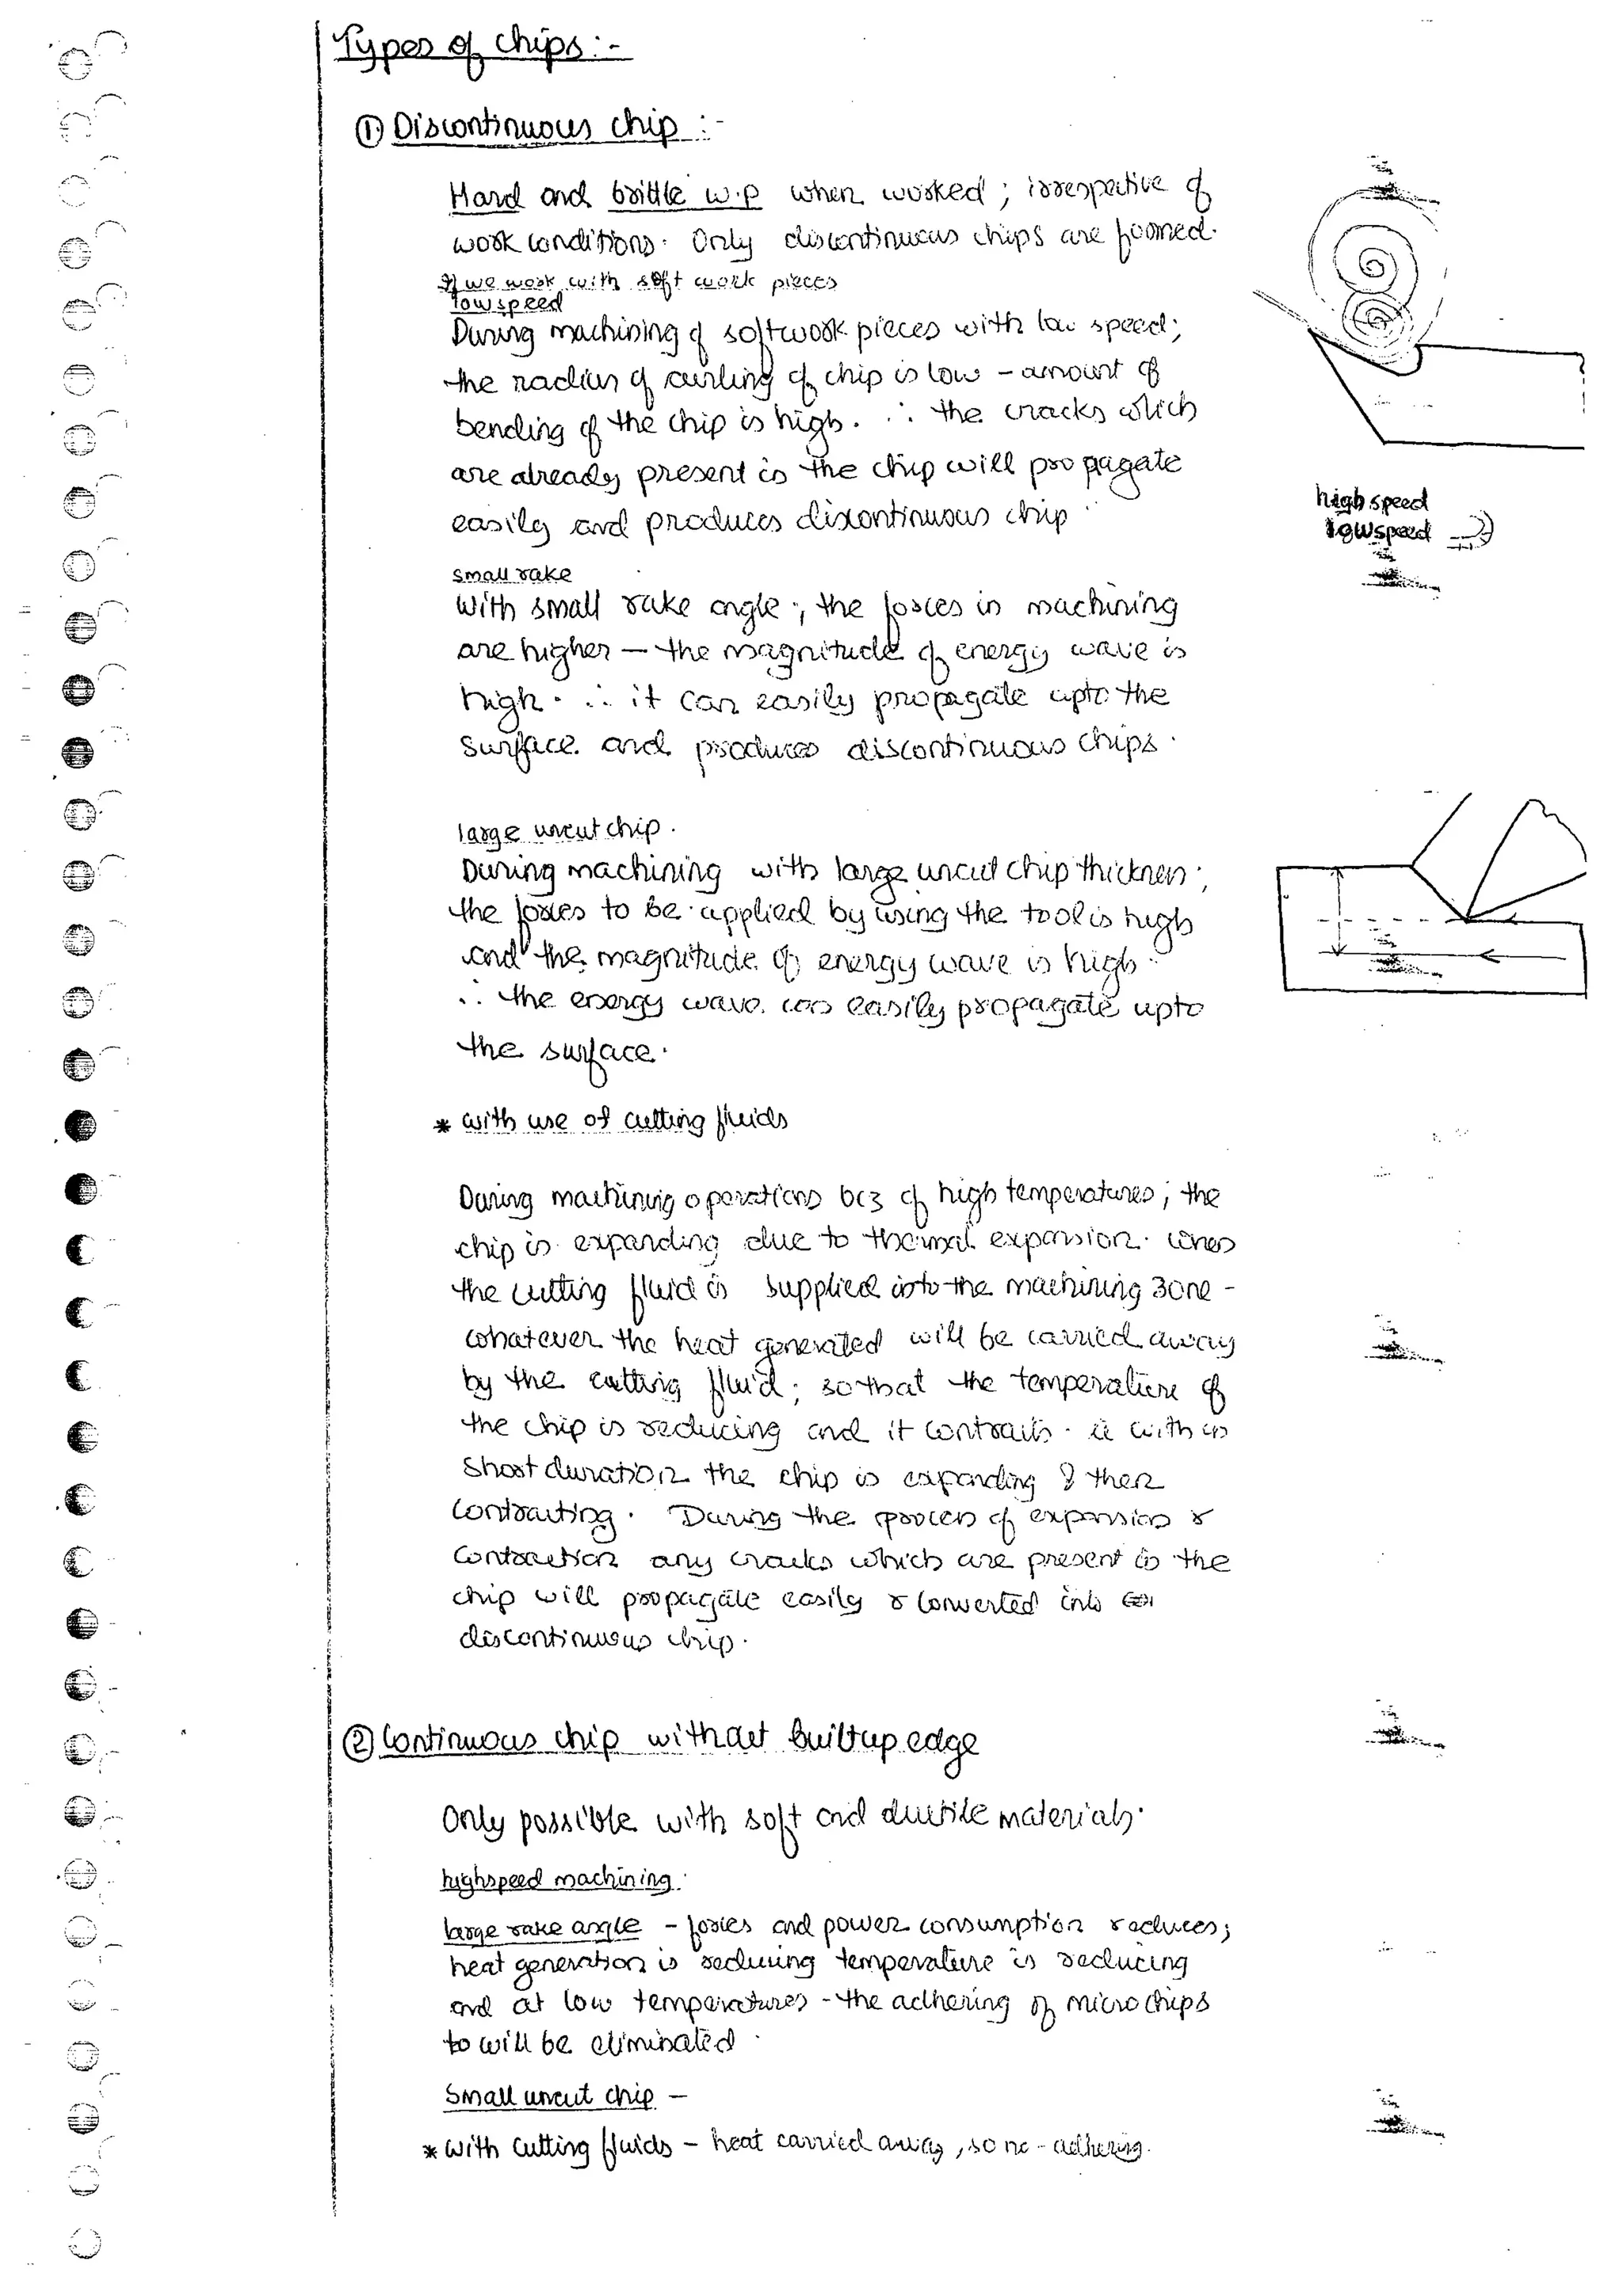 Types of chips :-
① Discontinuous chip :-
Hard and brittle w.p when worked ; irrespective of
work conditions. Only discontinuous chips are formed.
If we work with soft work pieces
low speed
During machining of soft work pieces with low speed;
the radius of curling of chip is low - amount of
bending of the chip is high. ∴ the cracks which
are already present in the chip will propagate
easily and produces discontinuous chip
high speed
low speed
small rake
With small rake angle ; the forces in machining
are higher — the magnitude of energy wave is
high. ∴ it can easily propagate upto the
surface and produces discontinuous chips.
large uncut chip.
During machining with large uncut chip thickness;
the forces to be applied by using the tool is high
and the magnitude of energy wave is high.
∴ the energy wave can easily propagate upto
the surface.
* with use of cutting fluids
During machining operations bcz of high temperatures; the
chip is expanding due to thermal expansion. When
the cutting fluid is supplied into the machining zone -
whatever the heat generated will be carried away
by the cutting fluid; so that the temperature of
the chip is reducing and it contracts. ie with in
short duration the chip is expanding & then
contracting. During the process of expansion &
contraction any cracks which are present in the
chip will propagate easily & converted into
discontinuous chip.
② Continuous chip without built up edge
Only possible with soft and ductile materials.
highspeed machining.
large rake angle - forces and power consumption reduces;
heat generation is reducing temperature is reducing
and at low temperatures - the adhering of micro chips
to will be eliminated
Small uncut chip —
* with cutting fluids - heat carried away, so no - adhering.